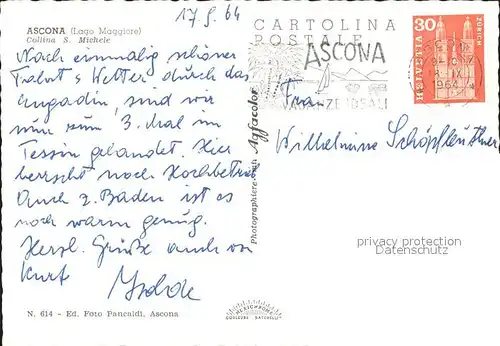 17.9.64
ASCONA (Lago Maggiore)
Collina S. Michele
CARTOLINA
POSTALE
ASCONA
VACANZE IDEALI
HELVETIA
30
ZÜRICH
18.IX
1964
Nach einmalig schöner
Fahrt u. Wetter durch das
Engadin, sind wir
nun zum 3. mal im
Tessin gelandet. Hier
herrscht noch Hochbetrieb
Auch z. Baden ist es
noch warm genug.
Herzl. Grüße auch von
Kurt
Isolde
Frau
Wilhelmine Schöpfleuthner
Photographiere auch Agfacolor
privacy protection
watermark
MEXICHROM
COULEURS NATURELLES
N. 614 - Ed. Foto Pancaldi, Ascona